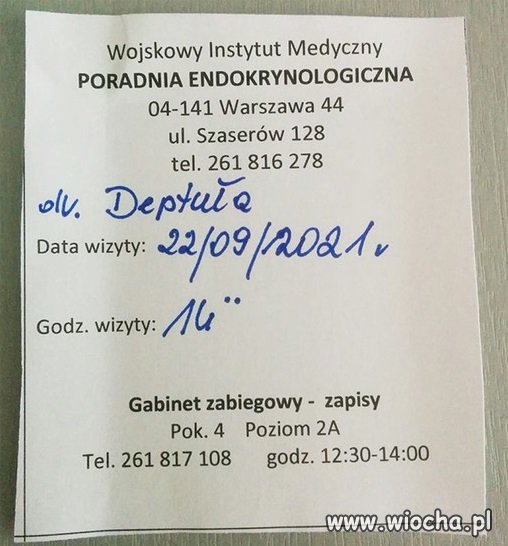 Wojskowy Instytut Medyczny
PORADNIA ENDOKRYNOLOGICZNA
04-141 Warszawa 44
ul. Szaserów 128
tel. 261 816 278
dr. Deptuła
Data wizyty: 22/09/2021r
Godz. wizyty: 14¨
Gabinet zabiegowy - zapisy
Pok. 4 Poziom 2A
Tel. 261 817 108 godz. 12:30-14:00
www.wiocha.pl